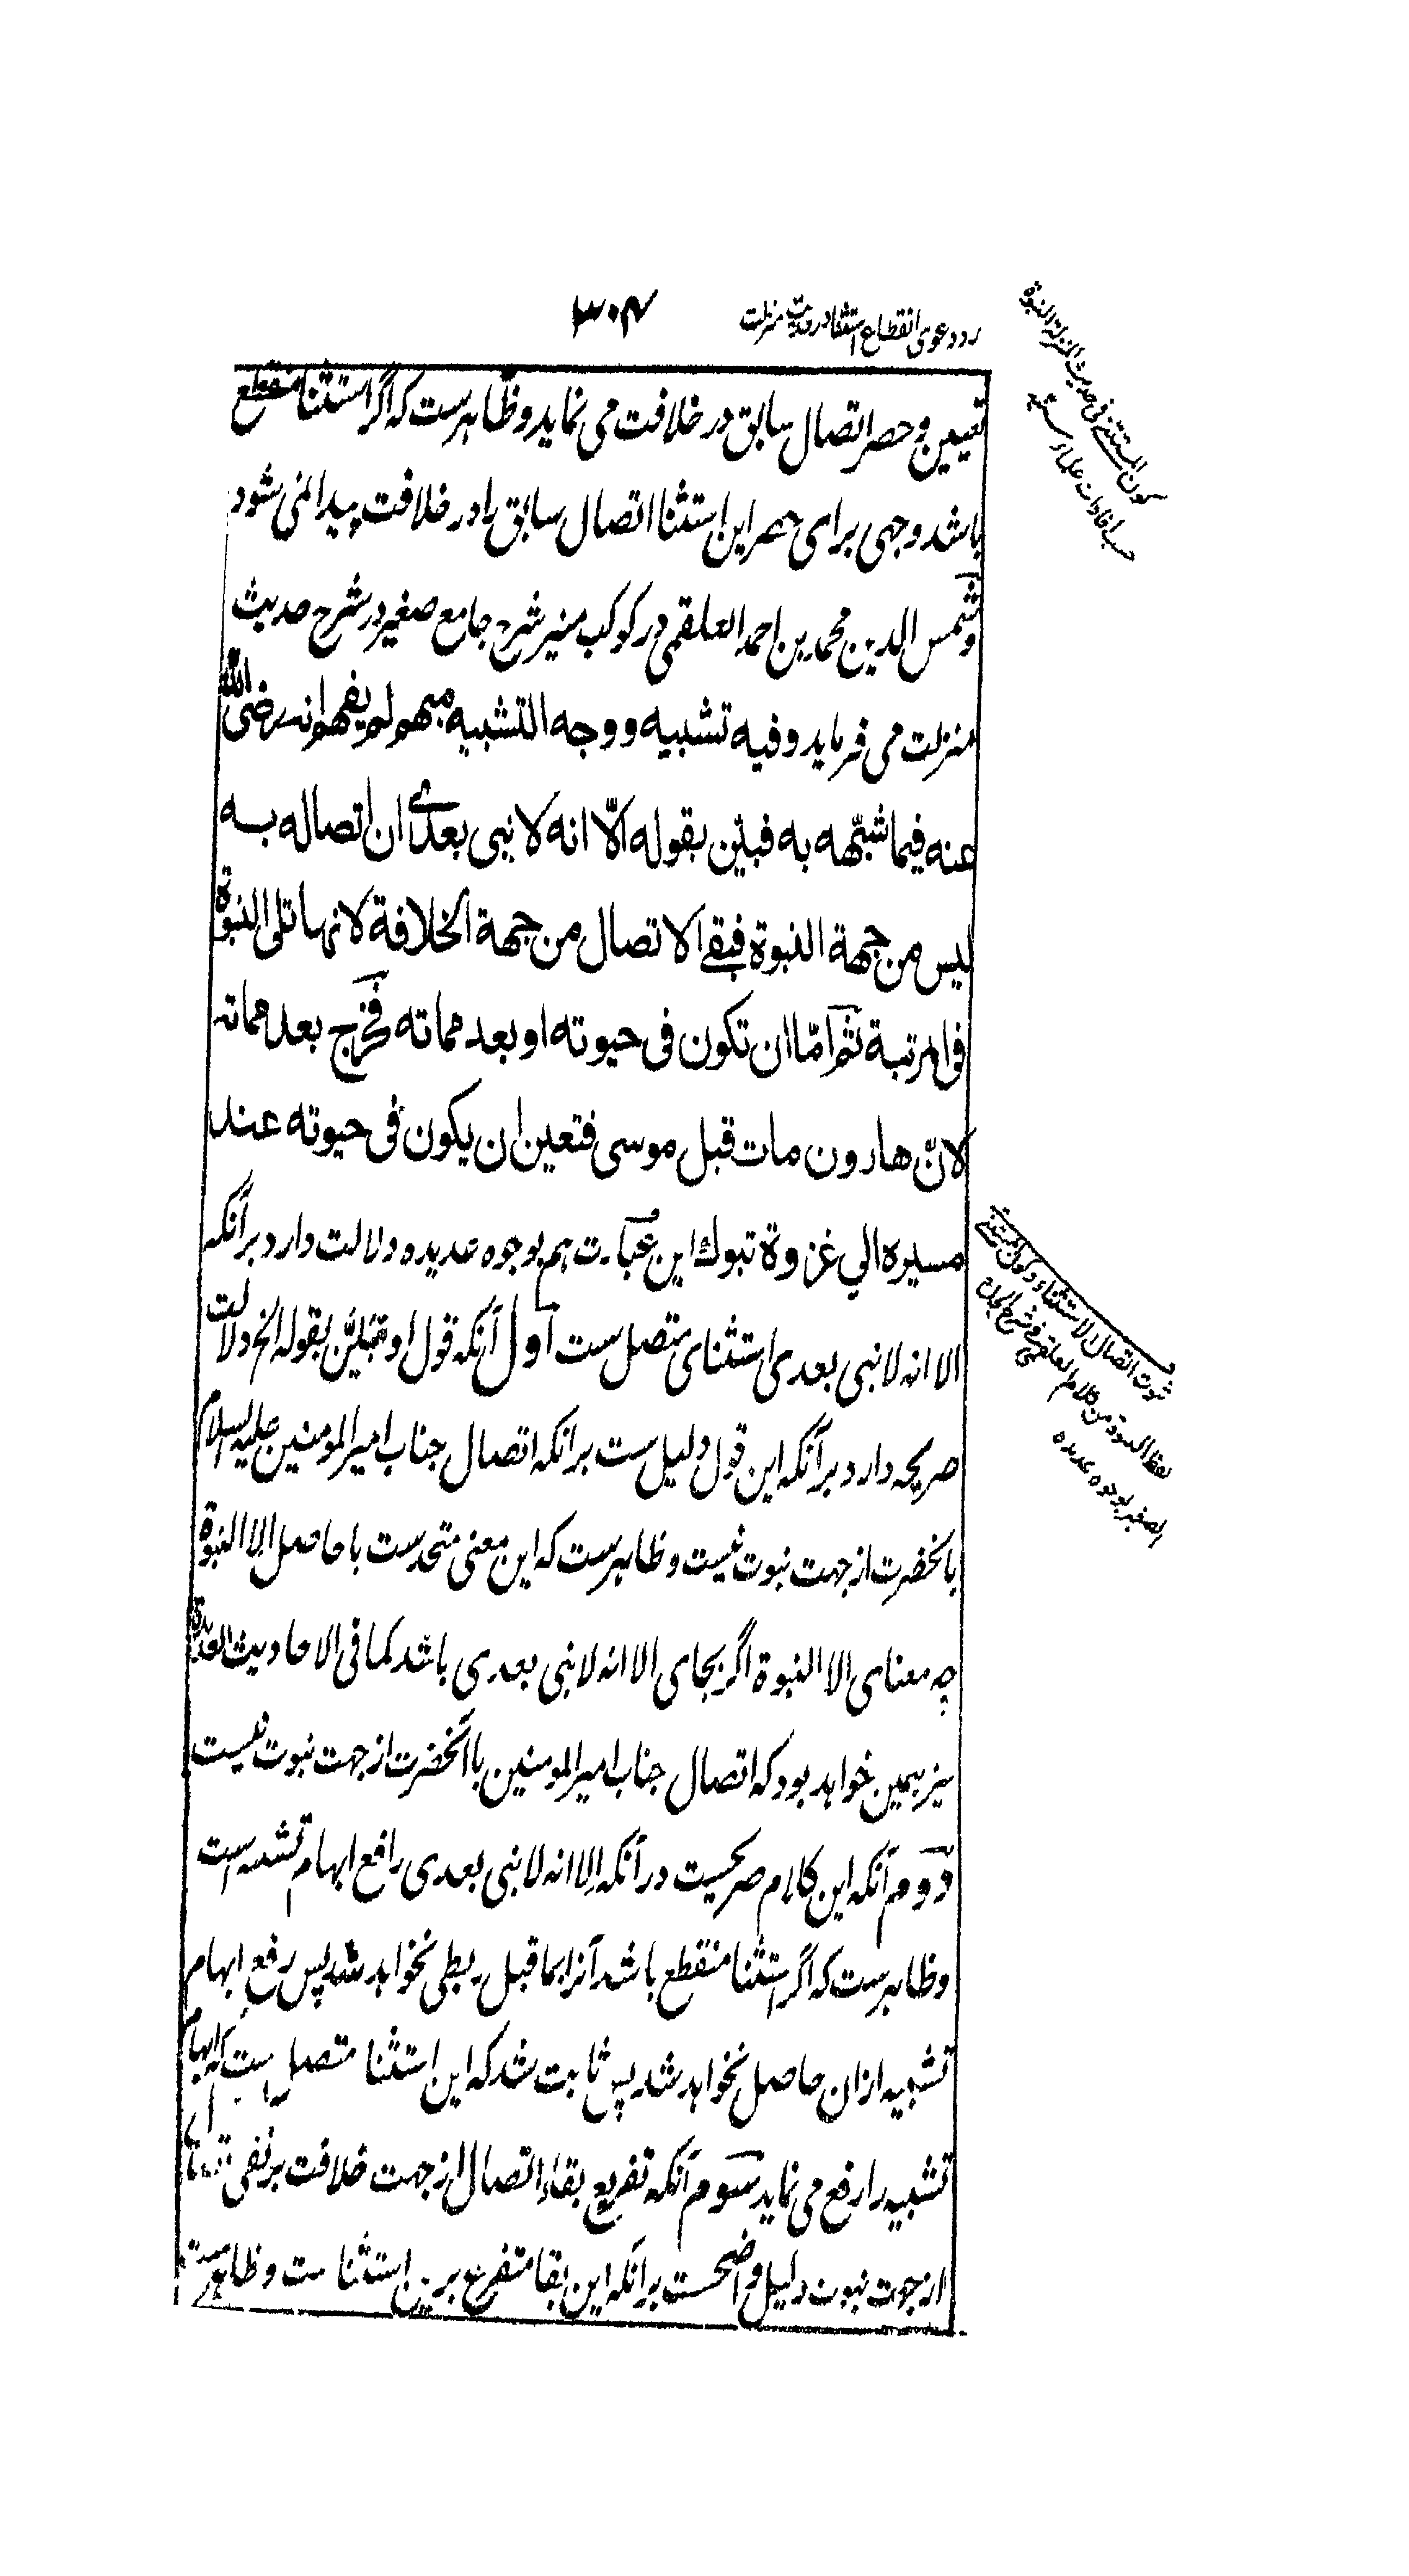 رد دعوی انقطاع استثنا در حدیث منزلت
۳۰۴
کون المستثنی فی حدیث المنزلة النبوة
حسب افادات علماء سنیه
تعیین و حصر اتصال سابق در خلافت می نماید و ظاهرست که اگر استثنا منقطع
باشد وجهی برای حصر این استثنا اتصال سابق را در خلافت پیدا نمی شود
و شمس الدین محمد بن احمد العلقمی در کوکب منیر شرح جامع صغیر در شرح حدیث
منزلت می فرماید و فیه تشبیه و وجه التشبیه مبهم لم یفهم انه رضی الله
عنه فیما شبّهه به فبیّن بقوله الّا انه لا نبی بعدی ان اتصاله به
لیس من جهة النبوة فبقی الاتصال من جهة الخلافة لانها تلی النبوة
فی المرتبة ثم امّا ان تکون فی حیوته او بعد مماته فخرج بعد مماته
لانّ هارون مات قبل موسی فتعین ان یکون فی حیوته عند
مسیره الی غزوة تبوك این عبارت هم بوجوه عدیده دلالت دارد بر آنکه
الا انه لا نبی بعدی استثنای متصل ست اول آنکه قول او فبیّن بقوله الخ دلالت
صریحه دارد بر آنکه این قول دلیل ست بر انکه اتصال جناب امیر المومنین علیه السلام
بآنحضرت از جهت نبوت نیست و ظاهرست که این معنی متحدست با حاصل الا النبوة
چه معنای الا النبوة اگر بجای الا انه لا نبی بعدی باشد کما فی الاحادیث العدیدة
نیز همین خواهد بود که اتصال جناب امیر المومنین با آنحضرت از جهت نبوت نیست
دوم آنکه این کلام صریحست در آنکه الا انه لا نبی بعدی رافع ابهام تشبیه است
و ظاهرست که اگر استثنا منقطع باشد آنرا بما قبل ربطی نخواهد شد پس رفع ابهام
تشبیه ازان حاصل نخواهد شد پس ثابت شد که این استثنا متصل است که ابهام
تشبیه را رفع می نماید سوم آنکه تفریع بقاء اتصال از جهت خلافت بر نفی اتصال
از جهت نبوت دلیل واضحست بر آنکه این بقا متفرع برین استثنا ست و ظاهرست
ثبوت اتصال الاستثناء و کون المستثنی
لفظ النبوة من کلام العلقمی فی شرح الجامع
الصغیر بوجوه عدیده